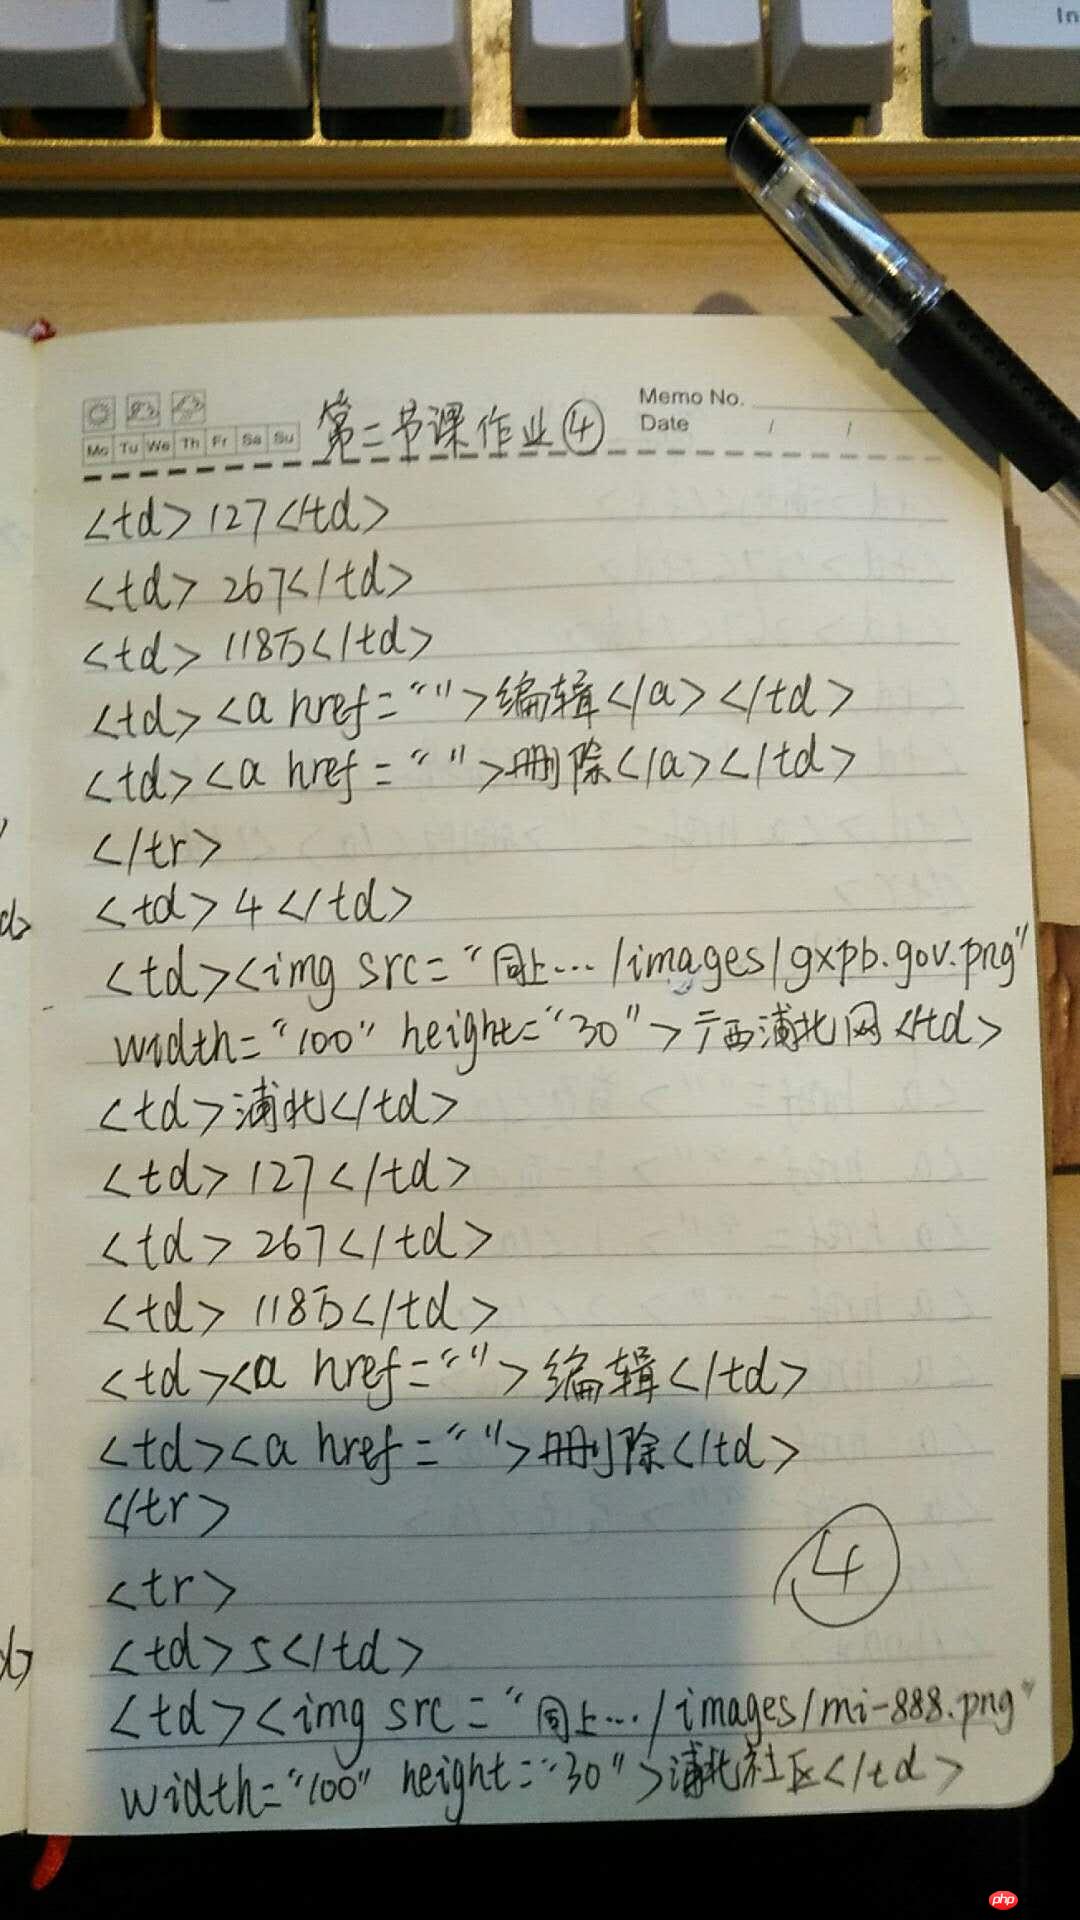 In
Memo No.
Date / /
Mo Tu We Th Fr Sa Su
第二节课作业④
<td>127</td>
<td>267</td>
<td>118万</td>
<td><a href="">编辑</a></td>
<td><a href="">删除</a></td>
</tr>
<td>4</td>
<td><img src="同上.../images/gxpb.gov.png"
width="100" height="30">广西浦北网</td>
<td>浦北</td>
<td>127</td>
<td>267</td>
<td>118万</td>
<td><a href="">编辑</td>
<td><a href="">删除</td>
</tr>
④
<tr>
<td>5</td>
<td><img src="同上.../images/mi-888.png"
width="100" height="30">浦北社区</td>
d>
d>
php